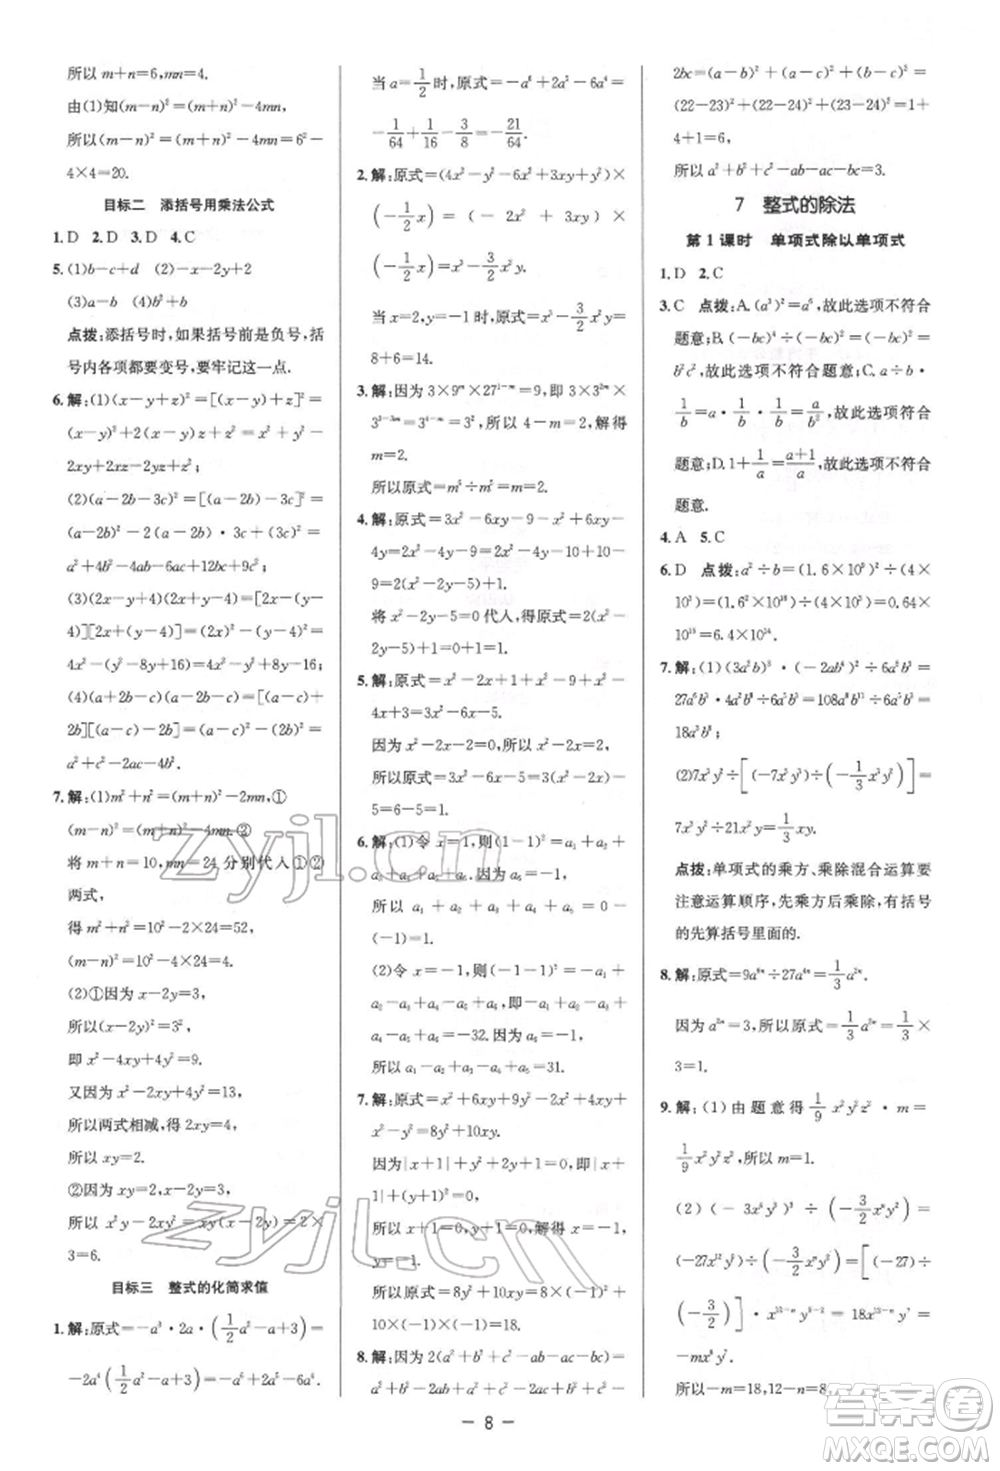 所以 m+n=6,mn=4.
由(1)知(m-n)²=(m+n)²-4mn,
所以(m-n)²=(m+n)²-4mn=6²-
4×4=20.
目标二 添括号用乘法公式
1.D 2.D 3.D 4.C
5.(1)b-c+d (2)-x²+2y²
(3)a-b (4)b²+b
点拨:添括号时,如果括号前是负号,括
号内各项都要变号,要牢记这一点.
6.解:(1)(x-y+z)²=[(x-y)+z]²=
(x-y)²+z²+2(x-y)z=x²+y²+z²-
2xy+2xz-2yz;
(2)(a-2b-3c)²=[(a-2b)-3c]²=
(a-2b)²-2(a-2b)·3c+(3c)²=
a²-4ab+4b²-6ac+12bc+9c²;
(3)(2x-y+4)(2x+y-4)=[2x-(y-
4)][2x+(y-4)]=(2x)²-(y-4)²=
4x²-y²+8y-16;
(4)(a+2b-c)(a-2b-c)=[(a-c)+
2b][(a-c)-2b]=(a-c)²-(2b)²=
a²-2ac+c²-4b².
7.解:(1)m²+n²=(m+n)²-2mn,①
(m-n)²=(m+n)²-4mn.②
将 m+n=10,mn=24 分别代入①②
两式,
得 m²+n²=10²-2×24=52,
(m-n)²=10²-4×24=4.
(2)①因为 x-2y=3,
所以(x-2y)²=3²,
即 x²-4xy+4y²=9.
又因为 x²-2xy+4y²=13,
两式相减,得 2xy=4,
所以 xy=2.
②因为 xy=2,x-2y=3,
所以 x²y-2xy²=xy(x-2y)=2×
3=6.
目标三 整式的化简求值
1.解:原式=-a³·2a·(1/2a²-a+3)=
-2a⁴(1/2a²-a+3)=-a⁶+2a⁵-6a⁴.
当 a=1/2时,原式=-a⁶+2a⁵-6a⁴=-
1/64+1/16-3/8=-21/64.
2.解:原式=(4x²-y²-x²+y²+2xy)×
(-1/2x)=(3x²+2xy)×
(-1/2x)=-3/2x³-x²y.
8+6=14.
3.解:因为 3×9ᵐ×27¹⁻ᵐ=9,即 3×3²ᵐ×
3³⁻³ᵐ=3⁴⁻ᵐ=3²,所以 4-m=2,解得
m=2.
所以原式=m⁶÷m⁵=m=2.
4.解:原式=3x²-6xy-9-x²+6xy-
4y=2x²-4y-9=2x²-4y-10+10-
9=2(x²-2y-5)+1.
将 x²-2y-5=0代入,原式=2(x²-
2y-5)+1=0+1=1.
5.解:原式=x²-2x+1+x²-9+x²-
4x+3=3x²-6x-5.
因为 x²-2x-2=0,所以 x²-2x=2,
所以原式=3x²-6x-5=3(x²-2x)
-5=6-5=1.
6.解:(1)令 x=1,则(1-1)²=a₁+a₂+
(-1)=1.
(2)令 x=-1,则(-1-1)⁵=-a₁+
a₂-a₃+a₄-a₅+a₆,即-a₁+a₂-
a₃+a₄-a₅+a₆=-32.因为a₆=-1,
所以 a₁-a₂+a₃-a₄+a₅=31.
7.解:原式=x²+6xy+9y²-2xy+4xy
-x²-y²=8y²+8xy.
因为|x+1|≥0,(y-1)²≥0,且(y-1)²+
|x+1|=0,
所以 x+1=0,y-1=0,解得 x=-1,
y=1.
8.解:因为 2(a²+b²+c²-ab-ac-bc)
=a²+b²-2ab+a²+c²-2ac+b²+c²-
2bc=(a-b)²+(a-c)²+(b-c)²=
(22-23)²+(22-24)²+(23-24)²=1+
4+1=6,
所以 a²+b²+c²-ab-ac-bc=3.
7 整式的除法
第1课时 单项式除以单项式
1.D 2.C
3.C 点拨:A.(a³)²=a⁶,故此选项不符合
题意;B.(-bc)⁴÷(-bc)²=(-bc)²=
b²c²,故此选项不符合题意;C.a÷b·
1/b=a·1/b·1/b=a/b²,故此选项符合
题意;D.1+1/a=(a+1)/a,故此选项不符合
题意.
4.A 5.C
6.D 点拨:a²÷b=(1.6×10⁹)²÷(4×
10³)=(1.6²×10¹⁸)÷(4×10³)=0.64×
10¹⁵=6.4×10¹⁴.
7.解:(1)(3a²b)³·(-2ab⁴)²÷6a⁵b³=
27a⁶b³·4a²b⁸÷6a⁵b³=108a⁸b¹¹÷6a⁵b³=
18a³b⁸;
(2)7x³y²÷[(-7x⁵y³)÷(-1/3x³y²)]=
7x³y²÷21x²y=1/3xy.
点拨:单项式的乘方、乘除混合运算要
注意运算顺序,先乘方后乘除,有括号
的先算括号里面的.
8.解:原式=9a⁶ⁿ÷27a⁴ⁿ=1/3a²ⁿ.
因为 a²ⁿ=3,所以原式=1/3a²ⁿ=1/3×
3=1.
9.解:(1)由题意得1/9x²y²z²·m=
1/9x²y²z²,所以 m=1.
所以-m=18,12-n=8,
— 8 —
zyjl.cn
zyjl.cn
答案圈
MXQE.COM